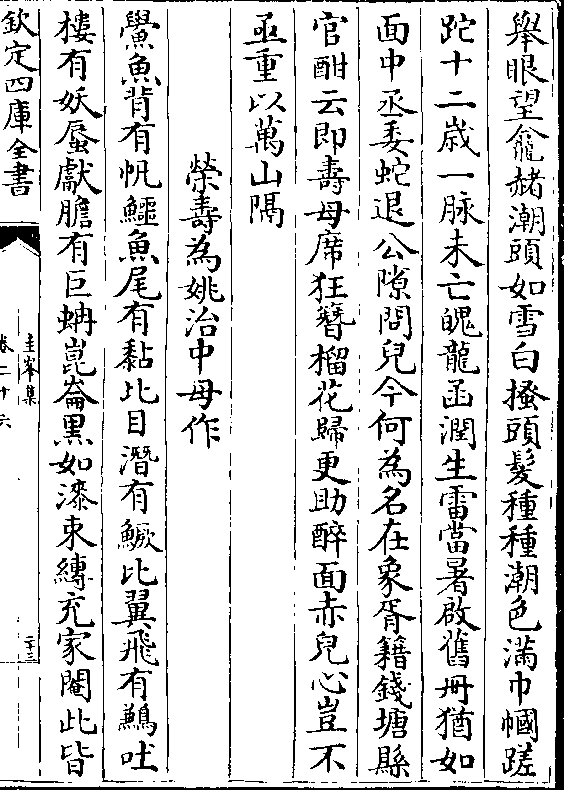 舉眼望龕赭潮頭如雪白搔頭髮種種潮色滿巾幗蹉
跎十二歲一脉未亡魄龍函潤生雷當暑啟舊冊猶如
面中丞委蛇退公隙問兒今何為名在象胥籍錢塘縣
官酣云即壽母席狂簪榴花歸更助醉面赤兒心豈不
亟重以萬山隔
榮壽為姚治中母作
鱟魚背有帆鱷魚尾有黏比目潛有鱖比翼飛有鶼吐
樓有妖蜃獻膽有巨蚺崑崙黑如漆束縳充家閹此皆
欽定四庫全書
圭峯集
卷二十六
二十三